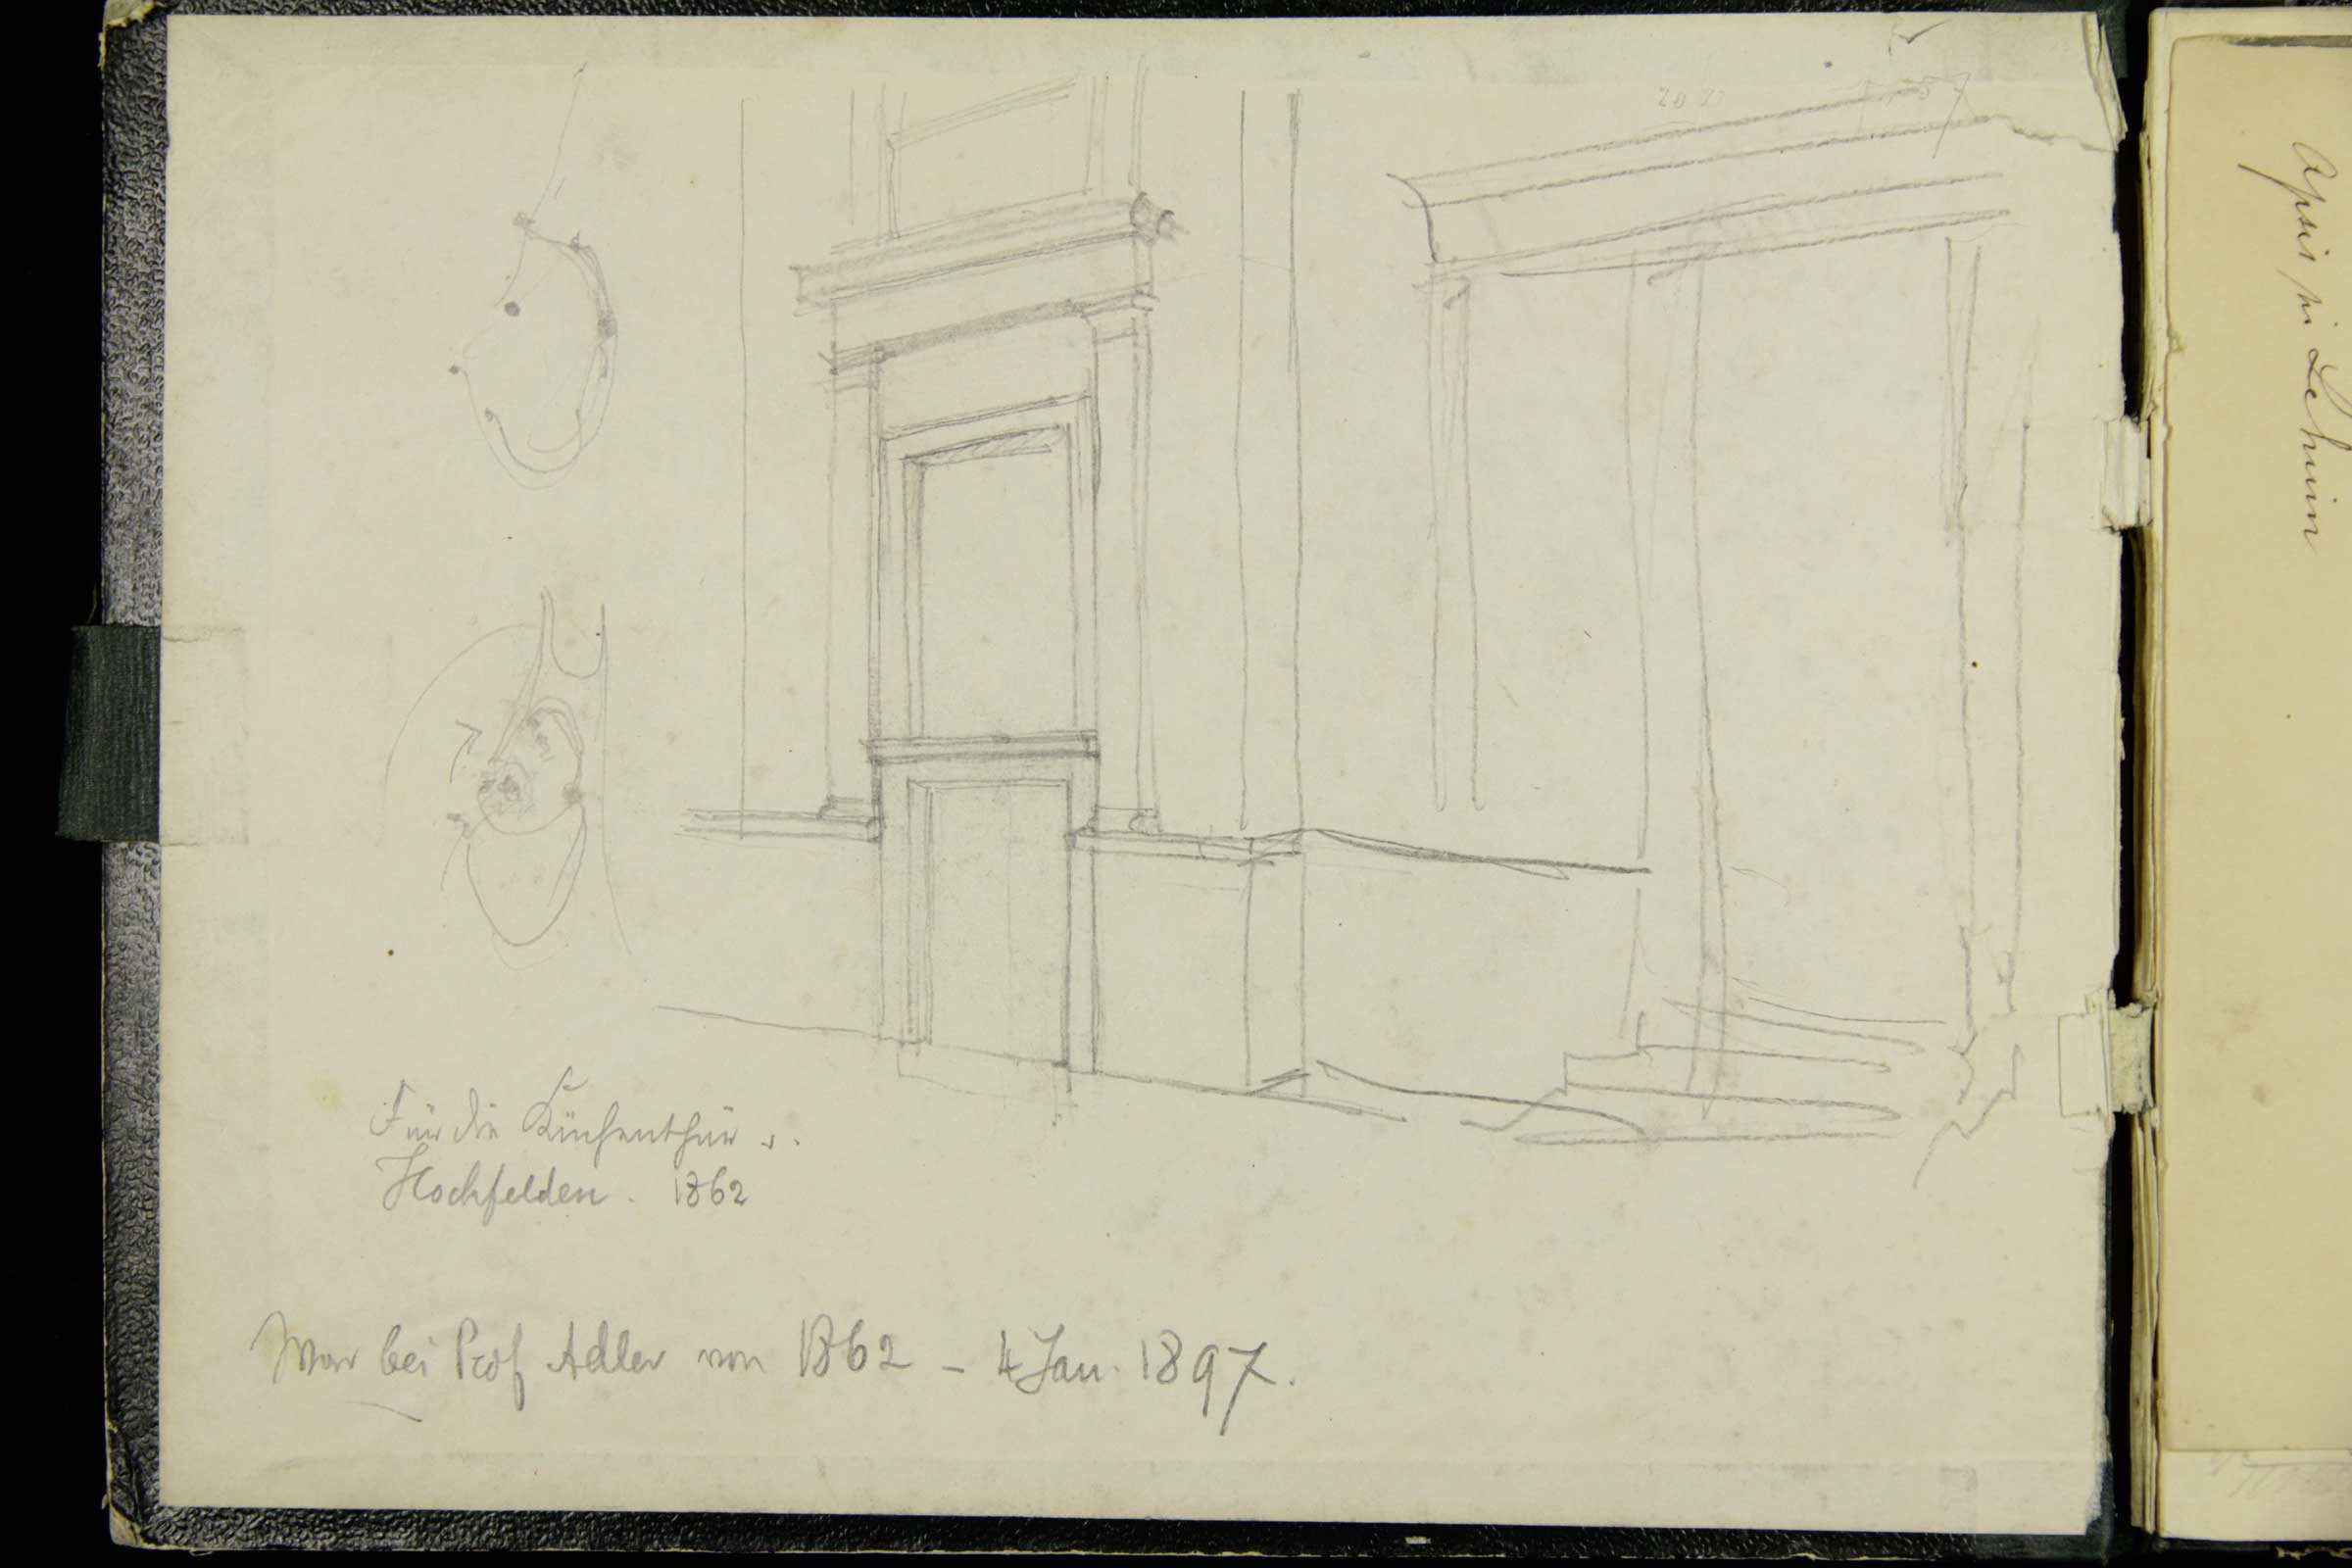 Für die Küchenthür v.
Hochfelden. 1862
War bei Prof Adler von 1862 – 4 Jan. 1897.
Apsis in Lehnin